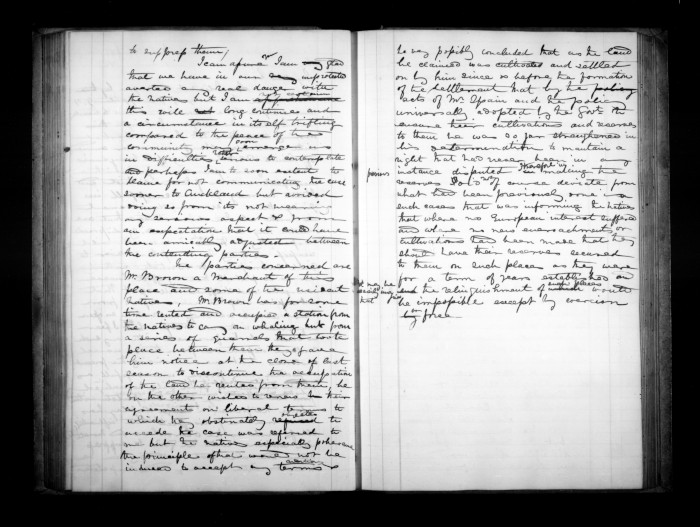 to suppress them /
I can assure I am glad
that we have in our unprotected
averted any real danger with
the natives but I am
this will not long continue and
a circumstance in itself trifling
compared to the peace of the
community may soon us
in difficulties serious to contemplate
and perhaps I am to some extent to
blame for not communicating the case
sooner to Auckland but avoided
doing so from its not wearing
any serious aspect & from
an expectation that it could have
been amicably adjusted between
the contending parties.
The parties concerned are
Mr Brown a merchant of this
place and some of the
natives, Mr Brown has for some
time rented and occupied a station from
the natives to carry on whaling but from
a series of quarrels that took
place between them they gave
him notice at the close of last
season to discontinue the occupation
of the land he rented from them, he
on the other wishes to renew their
agreement on liberal terms to
which they obstinately to
accede the case was referred to
me but the natives especially
the principle of that would not be
induced to accept any terms
he very possibly concluded that as the land
he claimed was cultivated and settled
on by him since or before the formation
of the settlement that by the policy
acts of Mr Spain and the policy
universally adopted by the Govt to
secure their cultivations and reserves
to them he was so far strengthened in
his determination to maintain a
right that had never been in any
instance disputed in making the
reserves I did not of course deviate from
what had been previously done in
such cases that was informing the natives
that where no European interest suffered
and where no new encroachments or
cultivations had been made that they
should have their reserves secured
to them on such places as they were
for a term of years established on
and the relinquishment of such places would
be impossible except by coercion
or force
persons